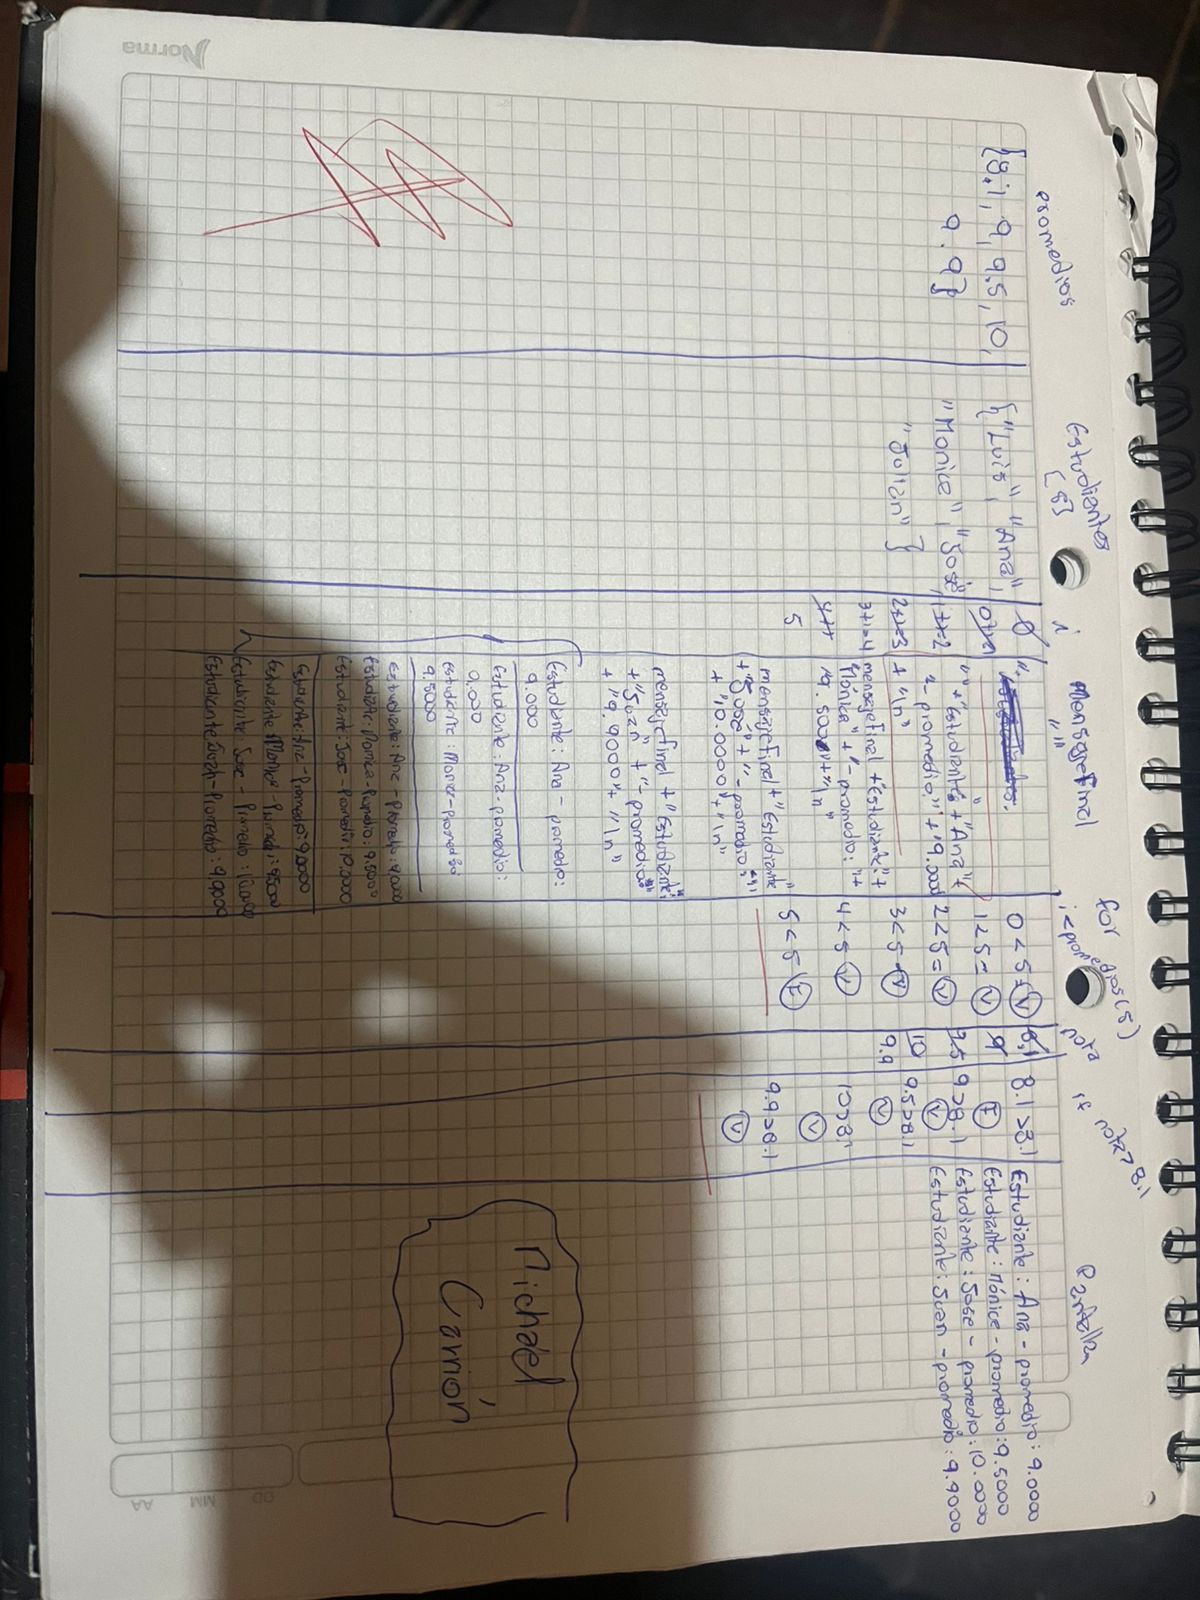 Norma
promedios
{8.1, 9, 9.5, 10,
9.9}
Estudiantes
[5]
{"Luis", "Ana",
"Monica", "José",
"Julian"}
i
0
0+1
1+1=2
2+1=3
3+1=4
4++
5
Mensajefinal
" "
"" + "Estudiante" + "Ana" +
"- promedio" + "9.000"
+ "\n"
mensajefinal + "Estudiante" +
"Mónica" + "- promedio: " +
"9.5000" + "\n"
mensajefinal + "Estudiante"
+ "Jose" + "- promedio"
+ "10.0000" + "\n"
mensajefinal + "Estudiante"
+ "- promedio"
+ "9.9000" + "\n"
Estudiante: Ana - promedio:
9.000
Estudiante: Ana - promedio:
Estudiante: Monica - Promedio
9.5000
Estudiante: Ana - promedio: 9.0000
Estudiante: Monica - Promedio: 9.5000
Estudiante: Jose - Promedio: 10.000
Estudiante: Ana - Promedio: 9.0000
Estudiante Monica - Promedio: 9.5000
Estudiante: Jose - Promedio: 10.000
Promedio: 9.9000
for
i<promedios(5)
0 < 5 = V
1 < 5 = V
2 < 5 = V
3 < 5 = V
4 < 5 = V
5 < 5 = F
8.1
9
9.5
10
9.9
if
>8.1
8.1 > 8.1
F
9 > 8.1
V
9.5 > 8.1
V
10 > 8.1
V
9.9 > 8.1
V
Pantalla
Estudiante: Ana - promedio: 9.0000
Estudiante: Mónica - promedio: 9.5000
Estudiante: Jose - promedio: 10.0000
Estudiante: Juan - promedio: 9.9000
Michael
Carrión
DD MM AA